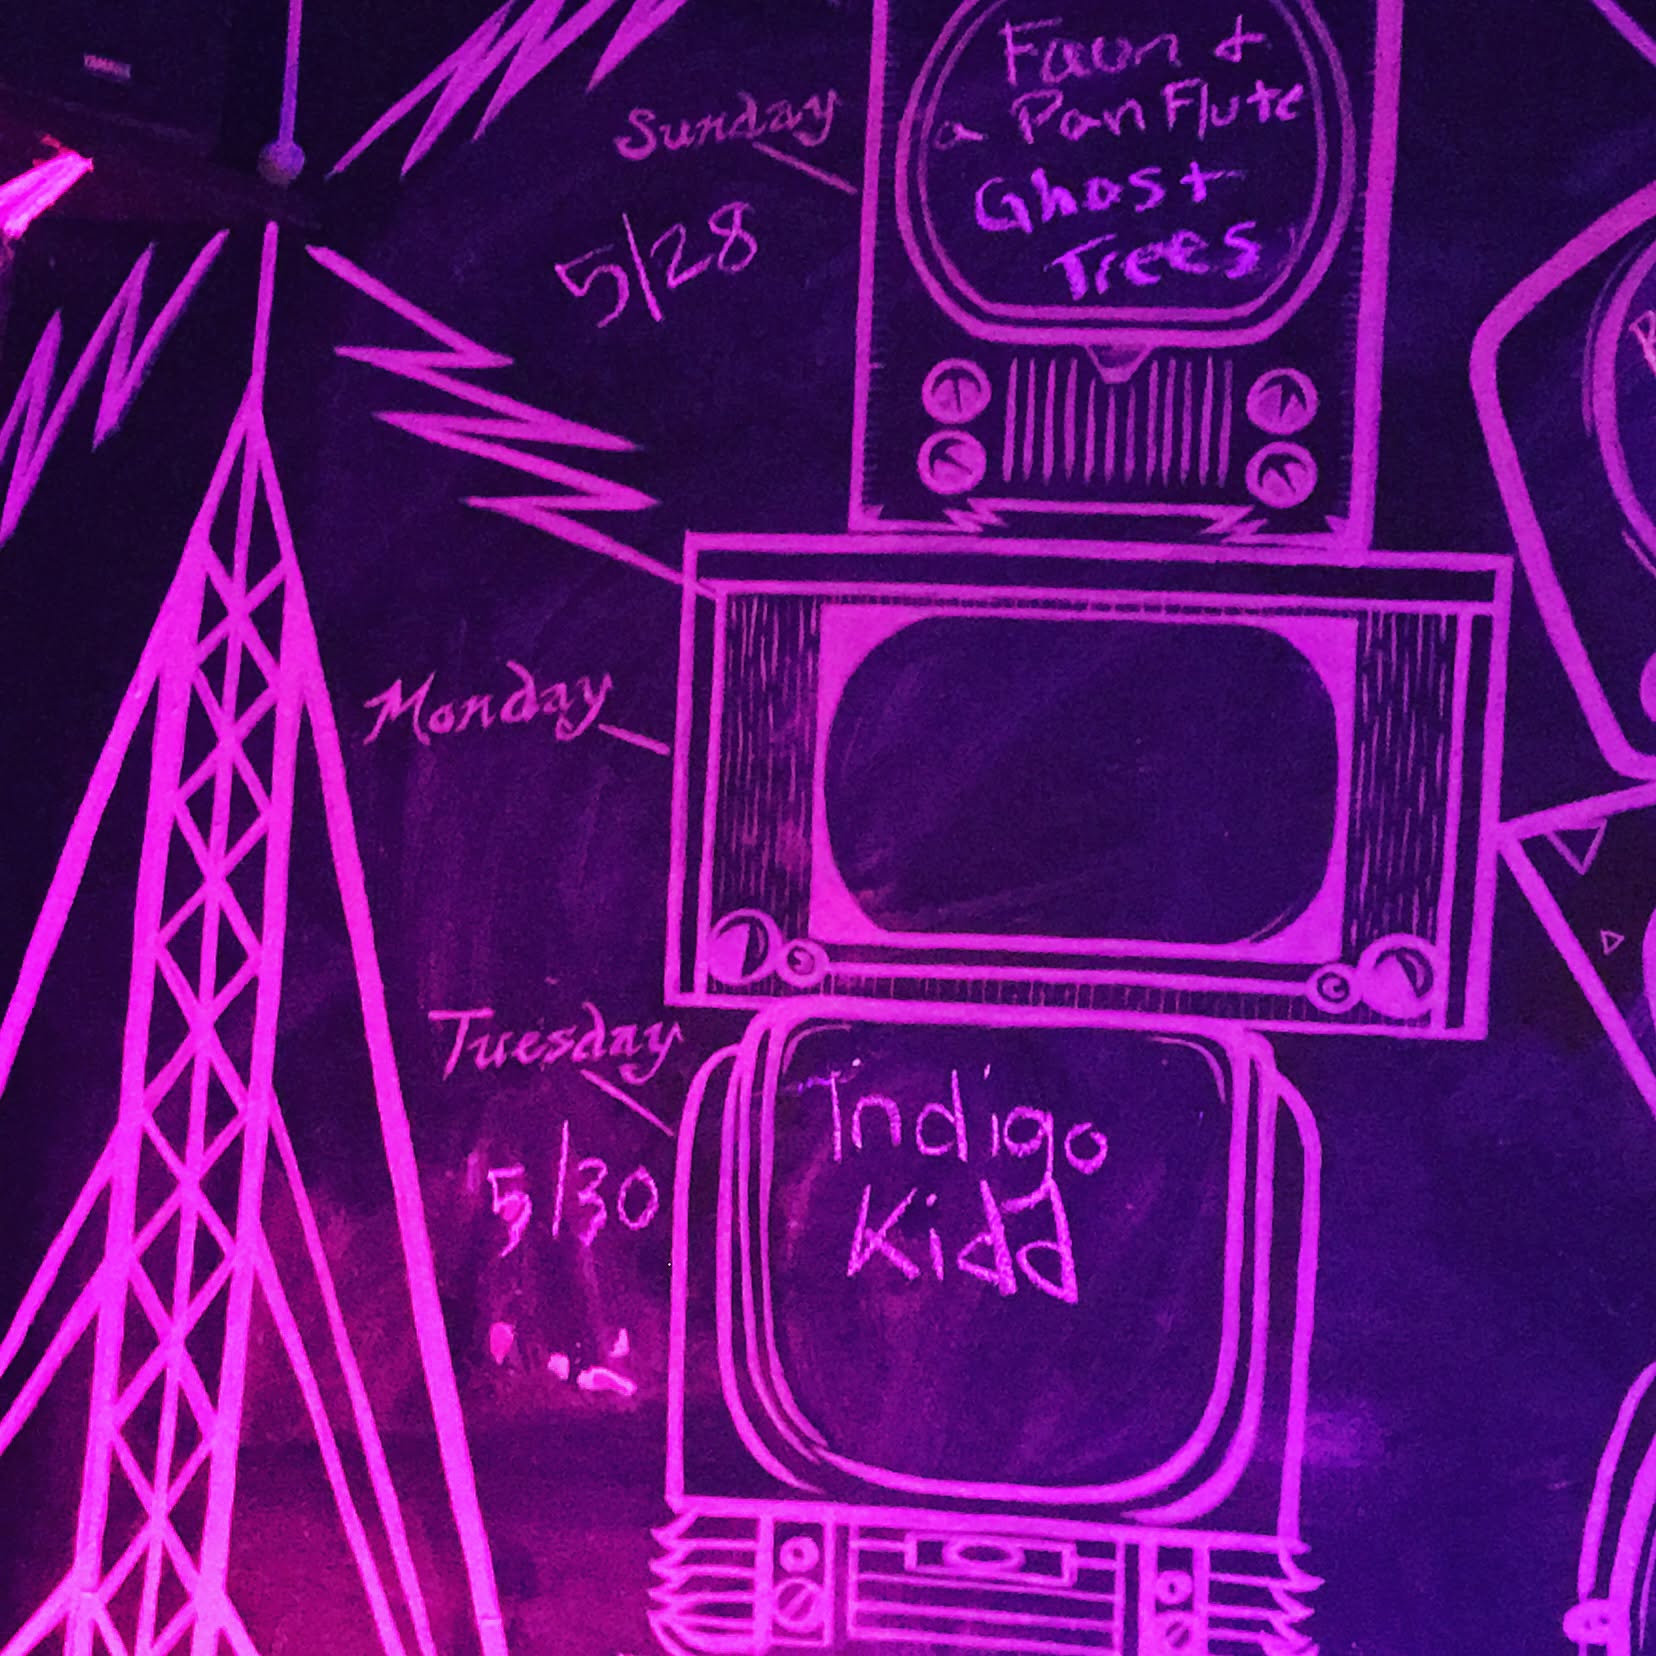 YAMAHA
Sunday
5/28
Faun +
a Pan Flute
Ghost
Trees
Monday
Tuesday
5/30
Indigo
Kidd